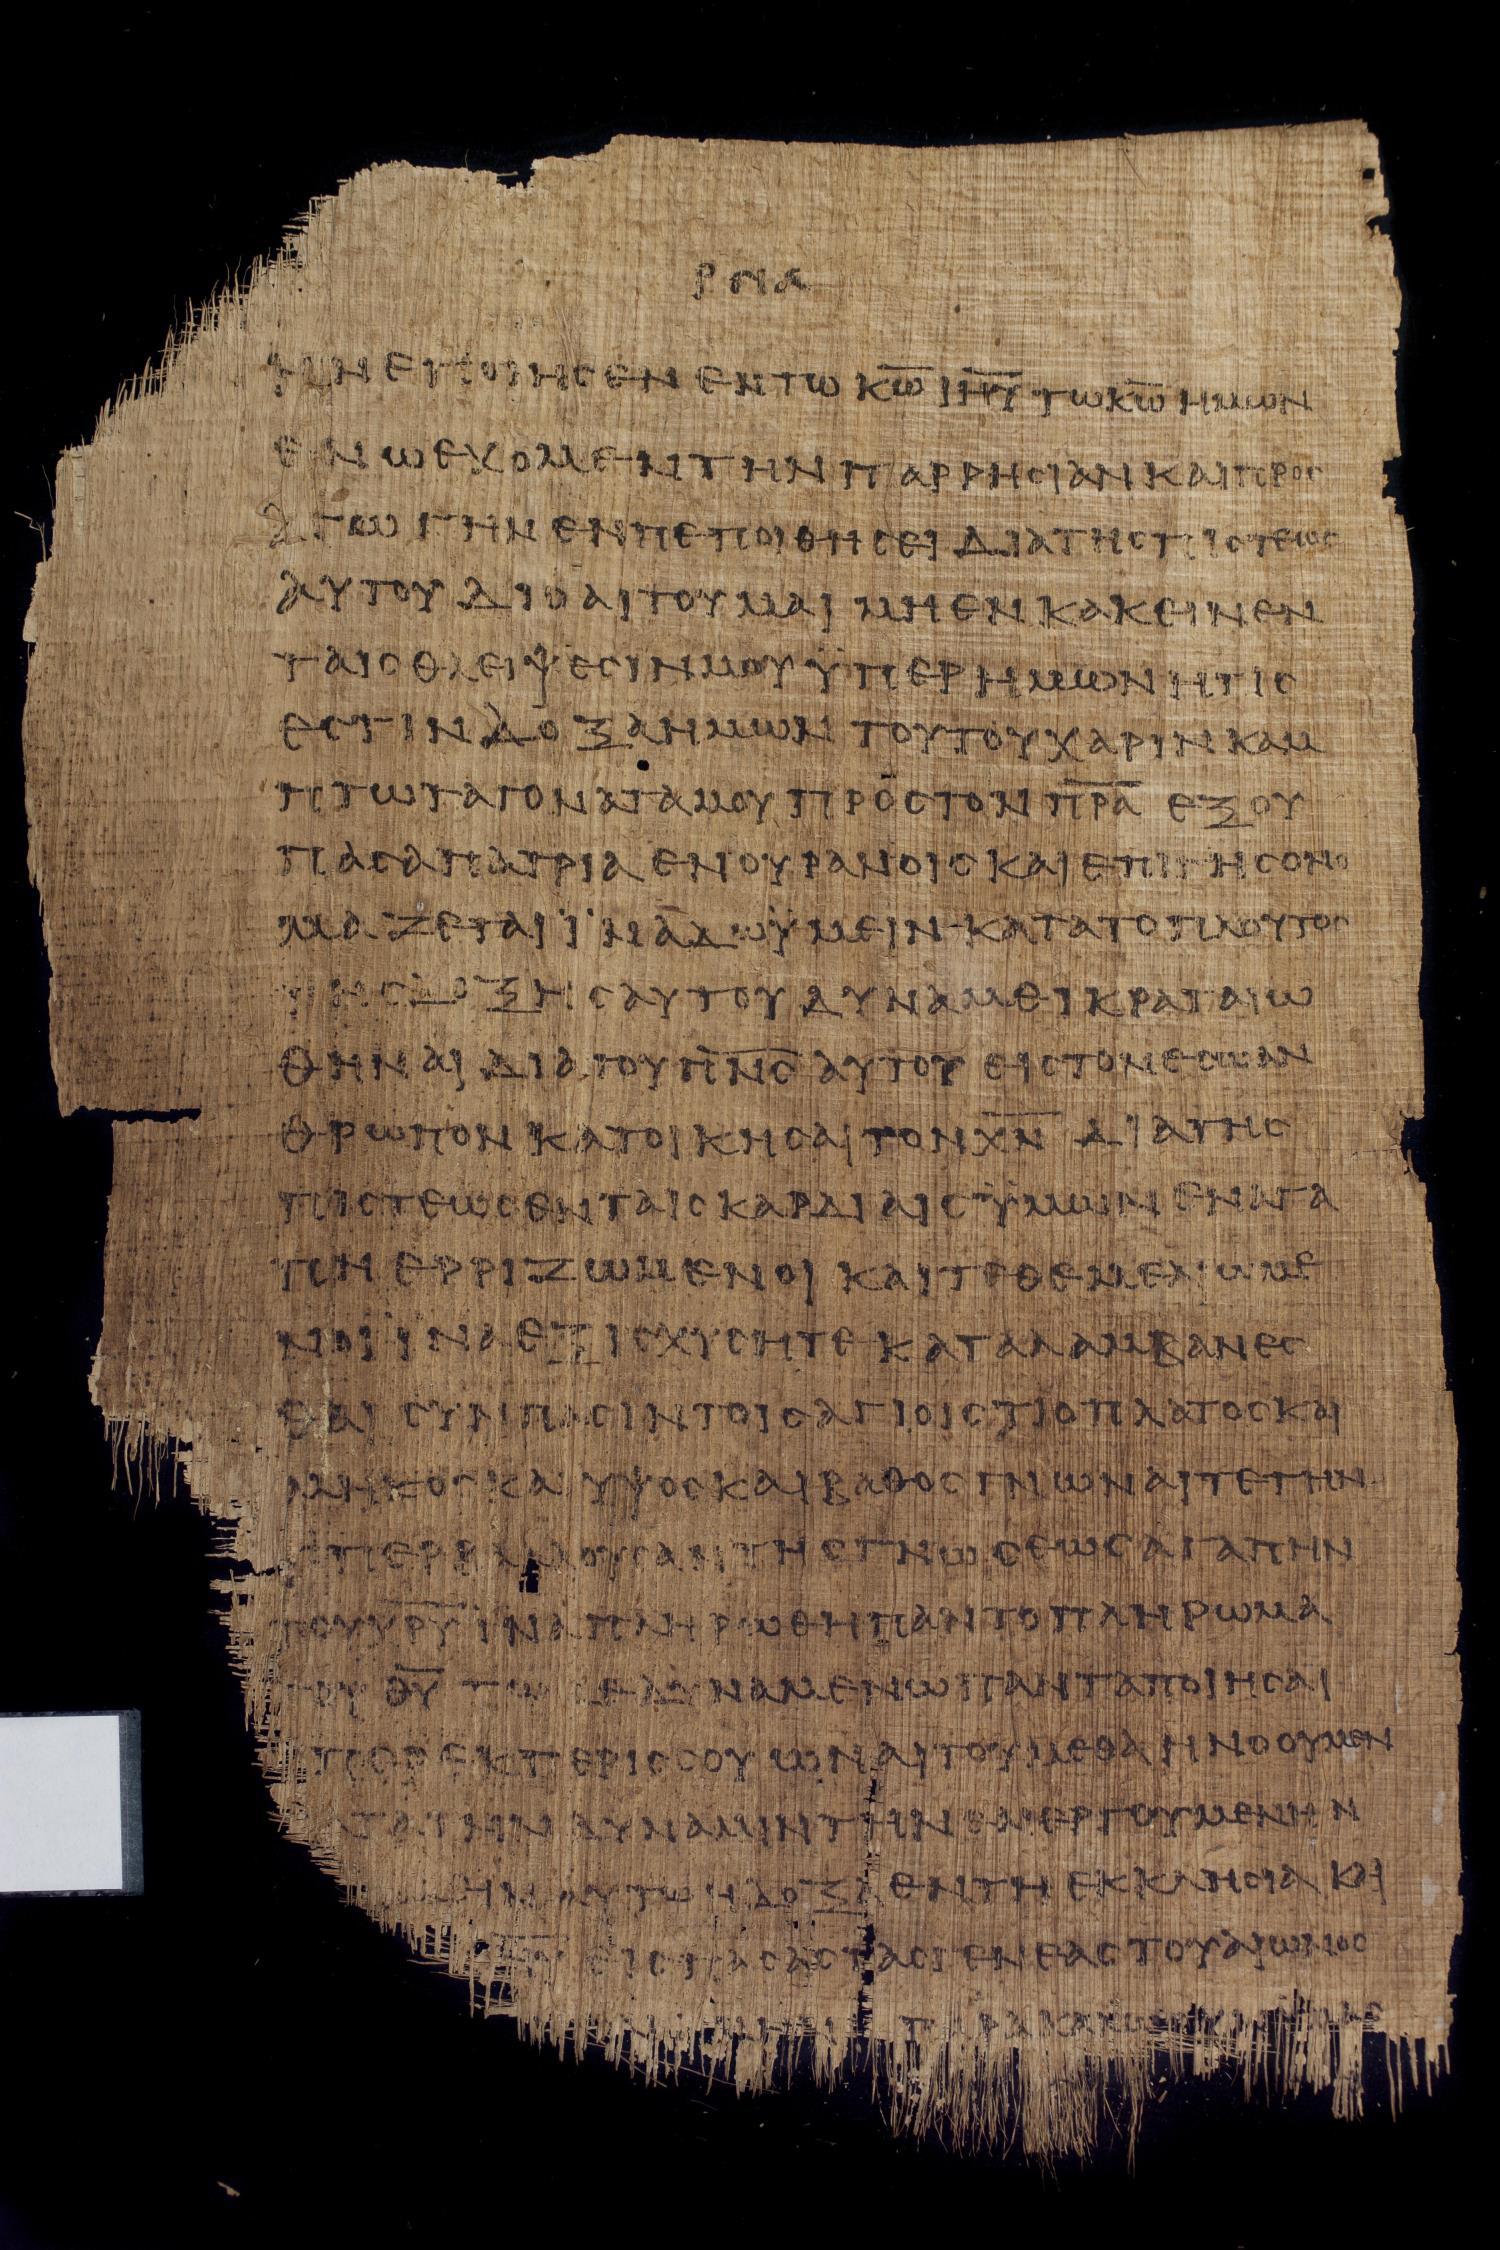 ρνα
ην εποιησεν εν τω κ̅ω̅ ι̅η̅υ̅ τω κ̅ω̅ ημων
εν ω εχομεν την παρρησιαν και προς
αγωγην εν πεποιθησει δια της πιστεως
αυτου διο αιτουμαι μη ενκακειν εν
ταις θλειψεσιν μου ϋπερ ημων ητις
εστιν δοξα ημων τουτου χαριν καμ
πτω τα γονατα μου προς τον π̅ρ̅α̅ εξ ου
πασα πατρια εν ουρανοις και επι γης ονο
μαζεται ϊνα δω ϋμειν κατα το πλουτος
της δοξης αυτου δυναμει κραταιω
θηναι δια του π̅ν̅ς̅ αυτου εις τον εσω αν
θρωπον κατοικησαι τον χ̅ν̅ δια της
πιστεως εν ταις καρδιαις ϋμων εν αγα
πη ερριζωμενοι και τεθεμελιωμε
νοι ϊνα εξισχυσητε καταλαμβανεσ
θαι συν πασιν τοις αγιοις τι το πλατος και
μηκος και υψος και βαθος γνωναι τε την
υπερβαλλουσαν της γνωσεως αγαπην
του χ̅ρ̅υ̅ ϊνα πληρωθη παν το πληρωμα
του θ̅υ̅ τω δε δυναμενω παντα ποιησαι
υπερεκπερισσου ων αιτουμεθα η νοουμεν
κατα την δυναμιν την ενεργουμενην
ημιν αυτω η δοξα εν τη εκκλησια και
εις πασας τας γενεας του αιωνος
παρακαλω